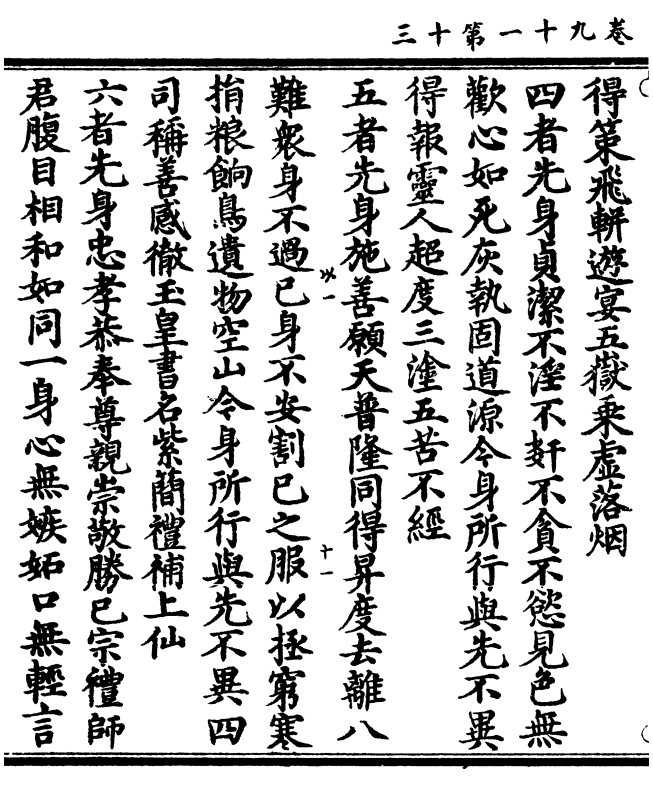 卷九十一第十三
得策飛軿遊宴五嶽乘虛落烟
四者先身貞潔不淫不姧不貪不慾見色無
歡心如死灰執固道源令身所行與先不異
得報靈人超度三塗五苦不經
五者先身施善願天普隆同得昇度去離八
難衆身不過已身不安割已之服以拯窮寒
捐粮餉鳥遺物空山令身所行與先不異四
司稱善感徹玉皇書名紫蕳禮補上仙
六者先身忠孝恭奉尊親崇敬勝已宗禮師
君腹目相和如同一身心無嫉妬口無輕言